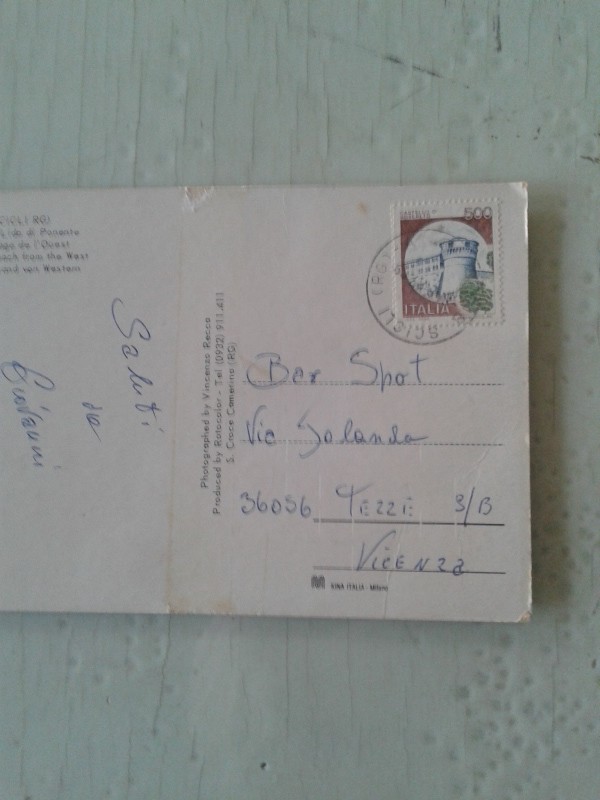 Lido di Ponente
from the West
Saluti
da
Giovanni
Photographed by Vincenzo Recca
Produced by Rotocolor - Tel (0932) 911.411
S. Croce Camerina (RG)
500
ITALIA
SCICLI (RG)
Bar Spot
Via Jolanda
36056 TEZZE S/B
VICENZA